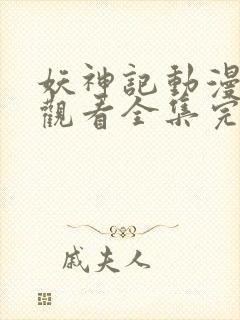 妖神記動漫
觀看全集完
戚夫人